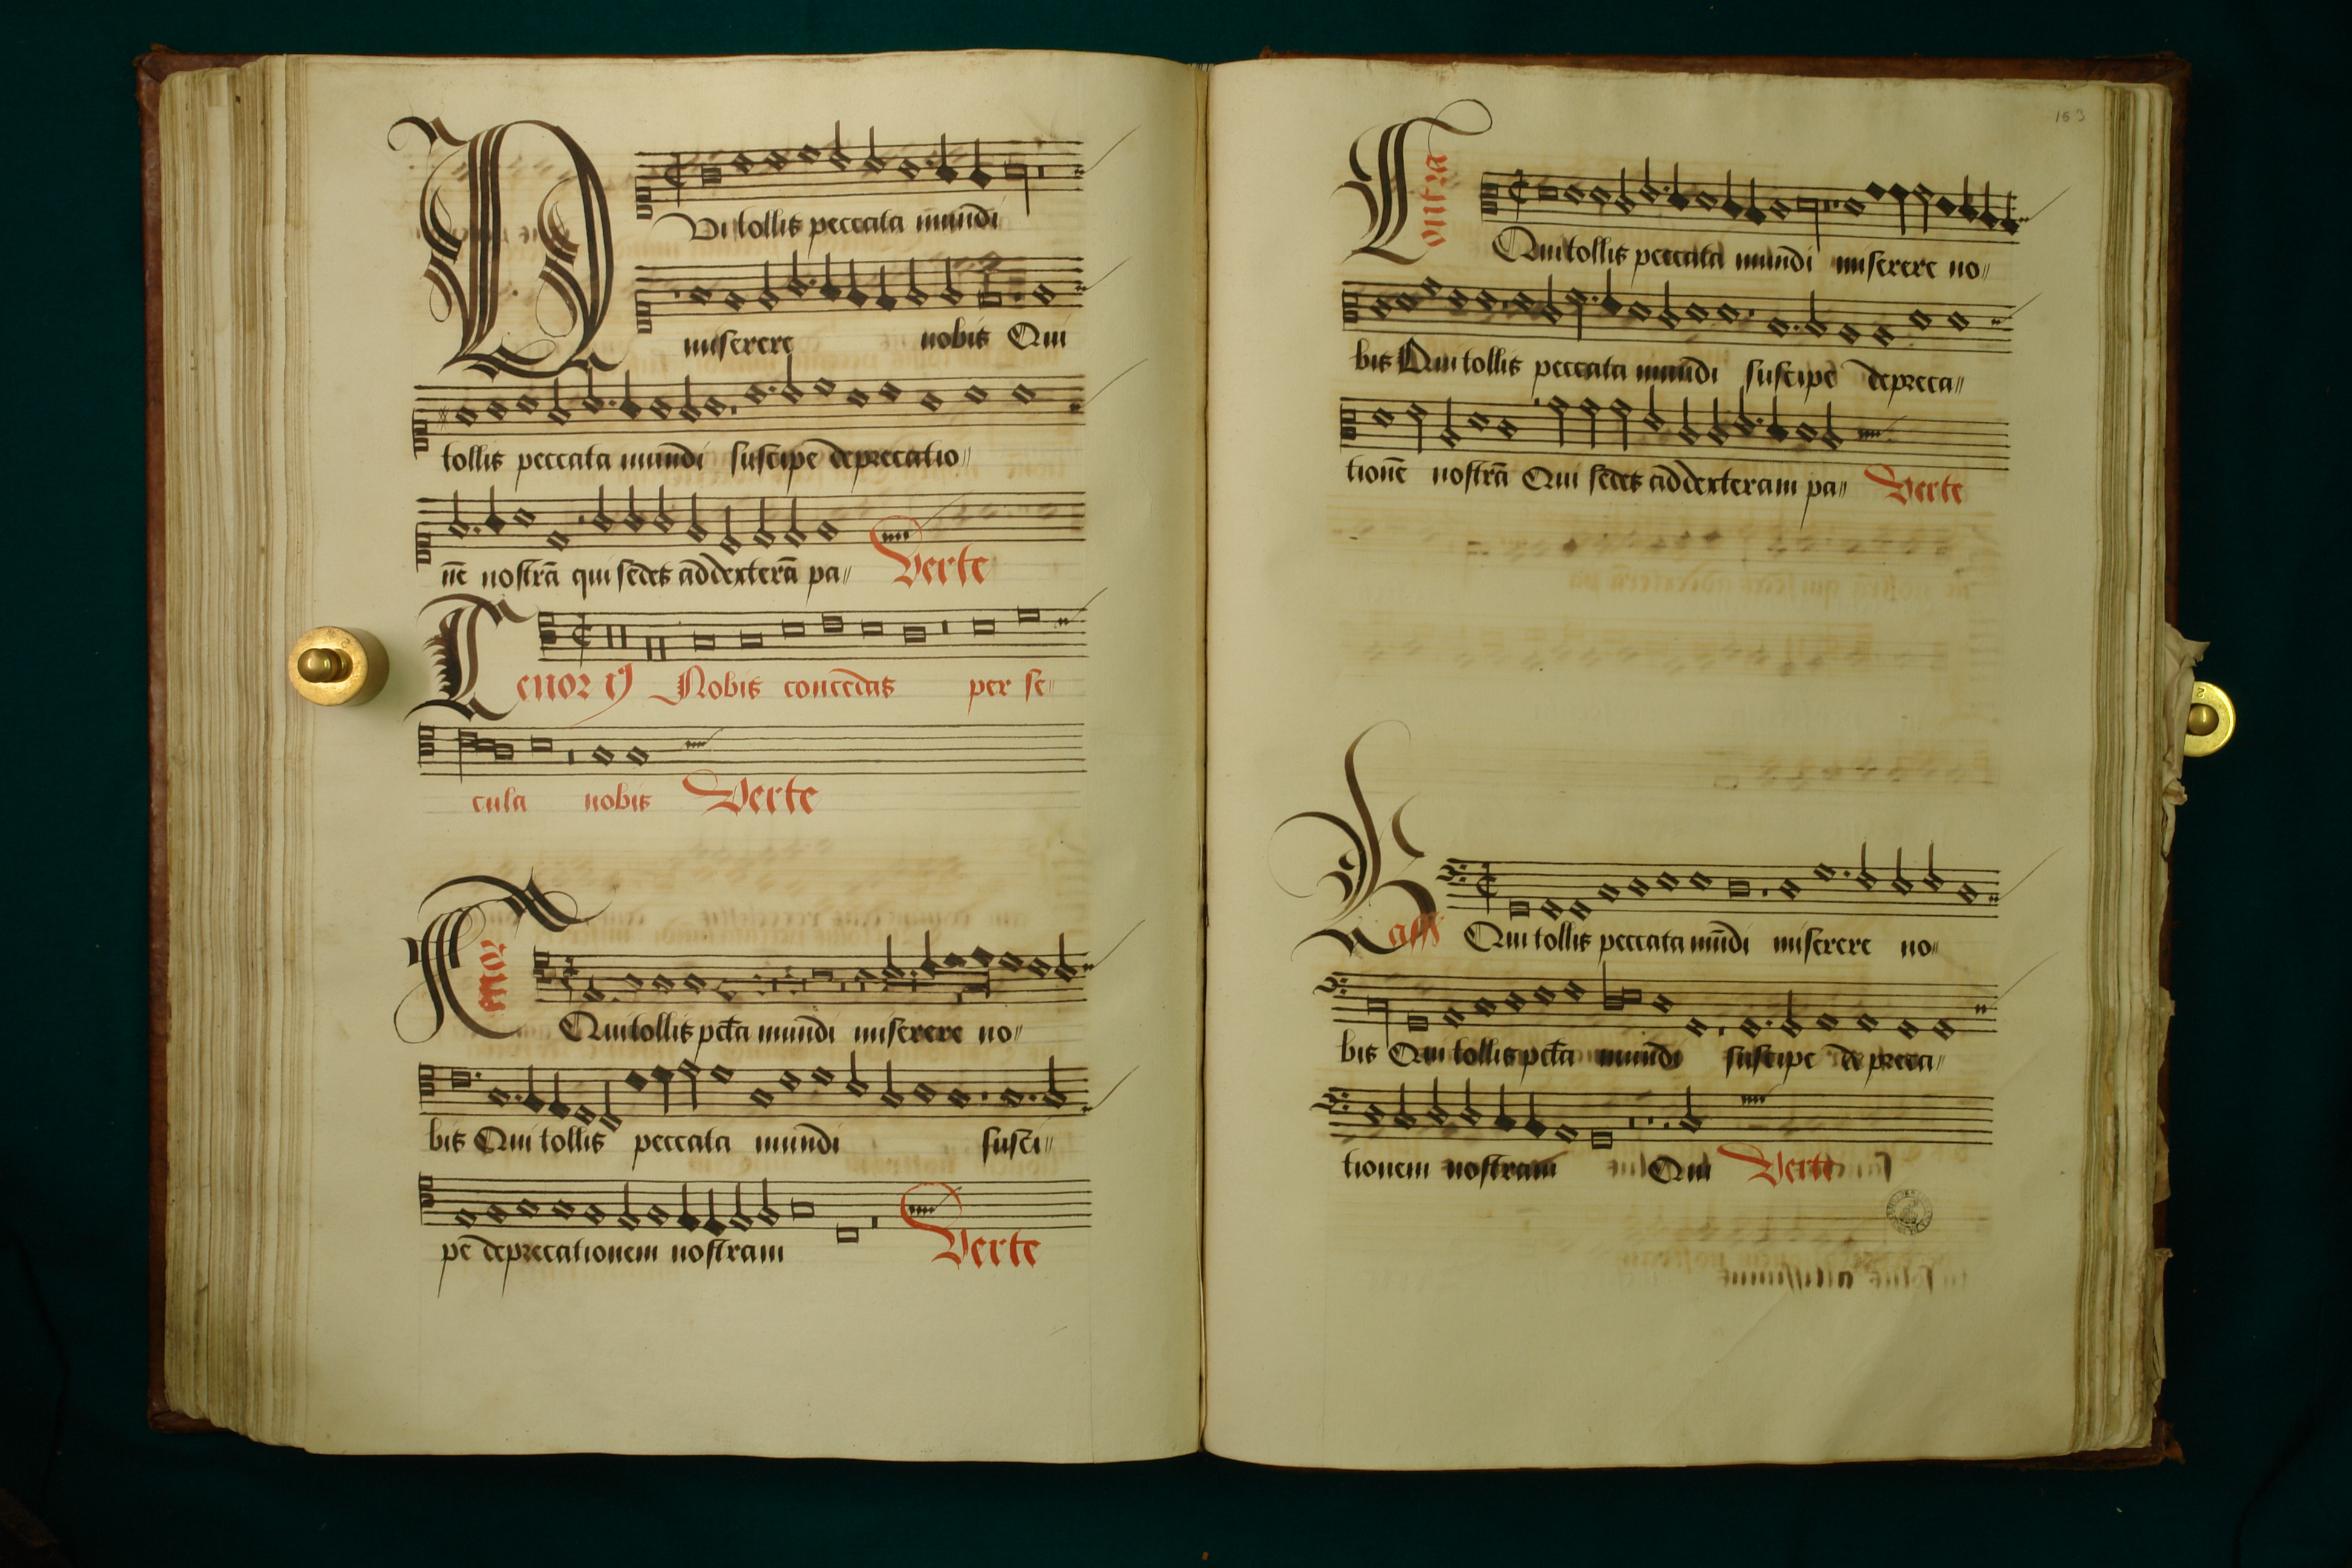 Qui tollis peccata mundi
miserere nobis Qui
tollis peccata mundi suscipe deprecatio〃
nē nostrā qui sedes addexterā pa〃 Verte
Tenor Nobis concedas per se〃
cula nobis Verte
Tenor
Qui tollis pctā mundi miserere no〃
bis Qui tollis peccata mundi susci〃
pe deprecationem nostram Verte
163
Contra
Qui tollis peccata mundi miserere no〃
bis Qui tollis peccata mundi suscipe depreca〃
tionē nostrā Qui sedes addexteram pa〃 Verte
Bass Qui tollis peccata mūdi miserere no〃
bis Qui tollis pctā mundi suscipe depreca〃
tionem nostram Qui Verte